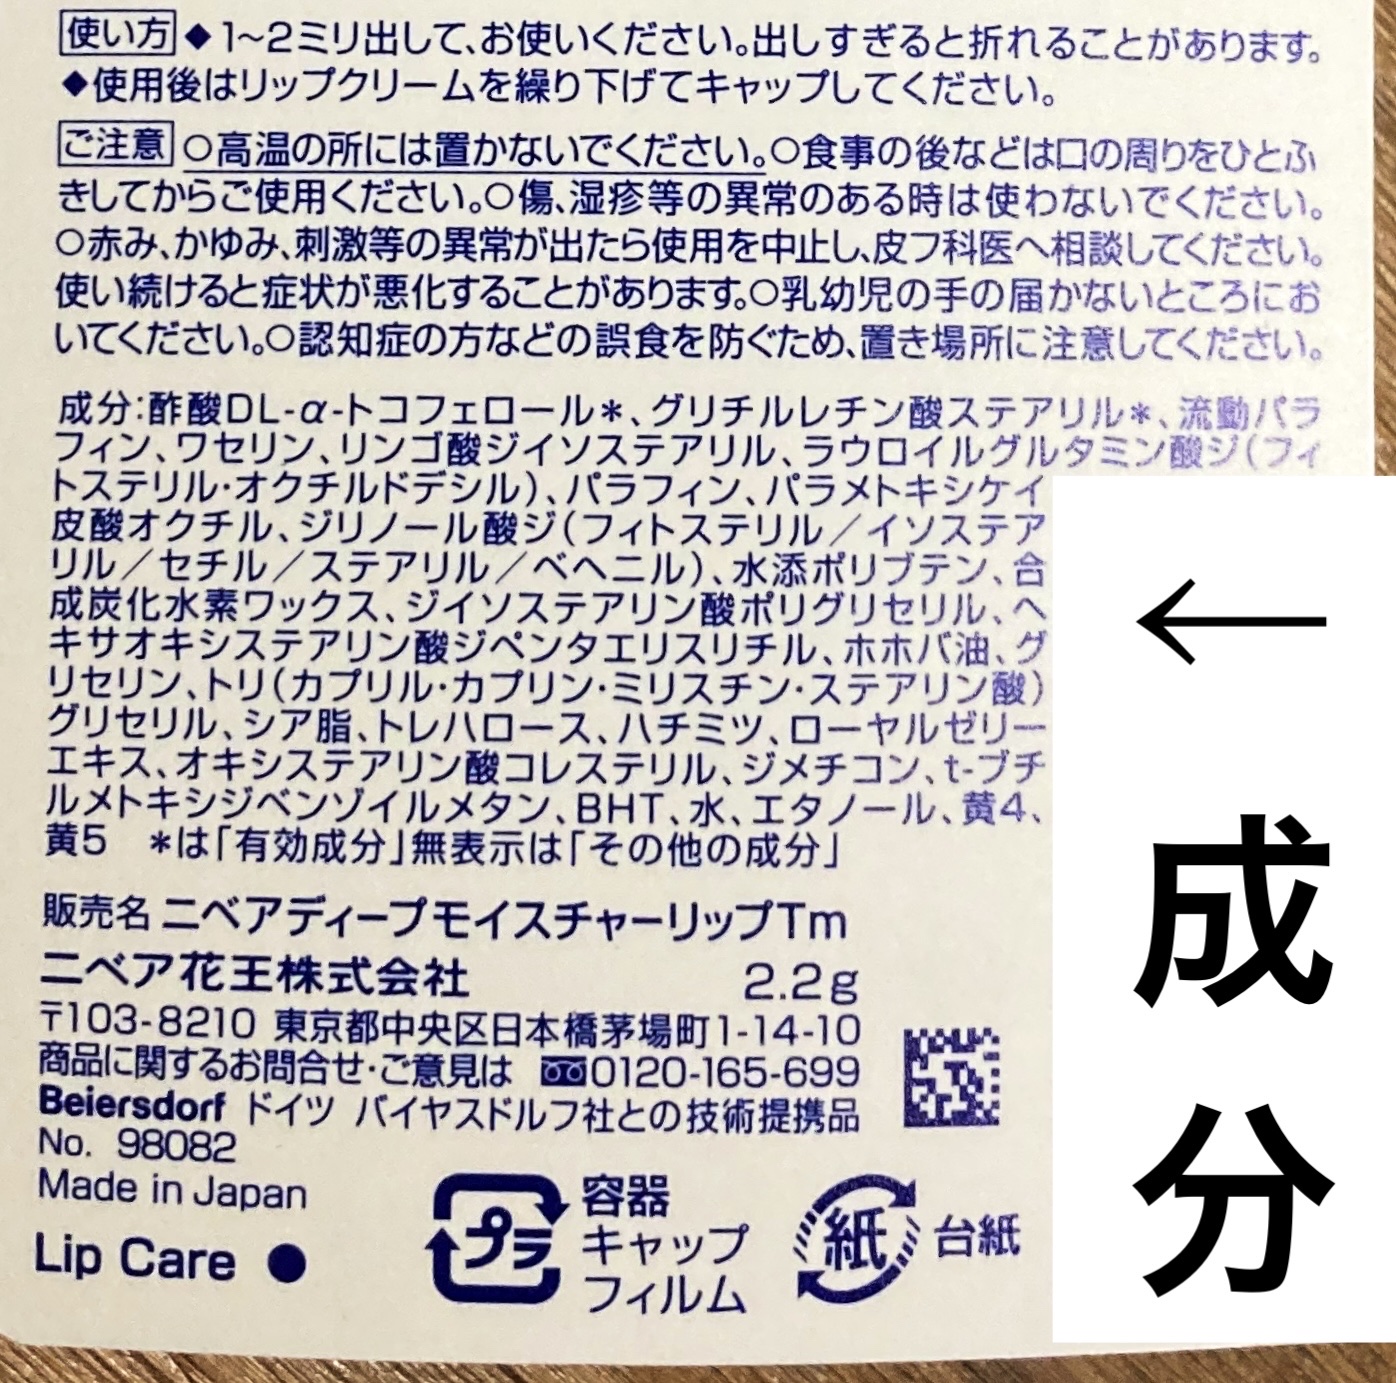 使い方 ◆1~2ミリ出して、お使いください。出しすぎると折れることがあります。
◆使用後はリップクリームを繰り下げてキャップしてください。
ご注意 ○高温の所には置かないでください。○食事の後などは口の周りをひとふ
きしてからご使用ください。○傷、湿疹等の異常のある時は使わないでください。
○赤み、かゆみ、刺激等の異常が出たら使用を中止し、皮フ科医へ相談してください。
使い続けると症状が悪化することがあります。○乳幼児の手の届かないところにお
いてください。○認知症の方などの誤食を防ぐため、置き場所に注意してください。
成分:酢酸DL-α-トコフェロール*、グリチルレチン酸ステアリル*、流動パラ
フィン、ワセリン、リンゴ酸ジイソステアリル、ラウロイルグルタミン酸ジ(フィ
トステリル・オクチルドデシル)、パラフィン、パラメトキシケイ
皮酸オクチル、ジリノール酸ジ(フィトステリル/イソステア
リル/セチル/ステアリル/ベヘニル)、水添ポリブテン、合
成炭化水素ワックス、ジイソステアリン酸ポリグリセリル、ヘ
キサオキシステアリン酸ジペンタエリスリチル、ホホバ油、グ
リセリン、トリ(カプリル・カプリン・ミリスチン・ステアリン酸)
グリセリル、シア脂、トレハロース、ハチミツ、ローヤルゼリー
エキス、オキシステアリン酸コレステリル、ジメチコン、t-ブチ
ルメトキシジベンゾイルメタン、BHT、水、エタノール、黄4、
黄5 *は「有効成分」無表示は「その他の成分」
販売名 ニベアディープモイスチャーリップTm
ニベア花王株式会社 2.2g
〒103-8210 東京都中央区日本橋茅場町1-14-10
商品に関するお問合せ・ご意見は 0120-165-699
Beiersdorf ドイツ バイヤスドルフ社との技術提携品
No. 98082
Made in Japan
Lip Care ●
プラ
容器
キャップ
フィルム
紙
台紙
←成分